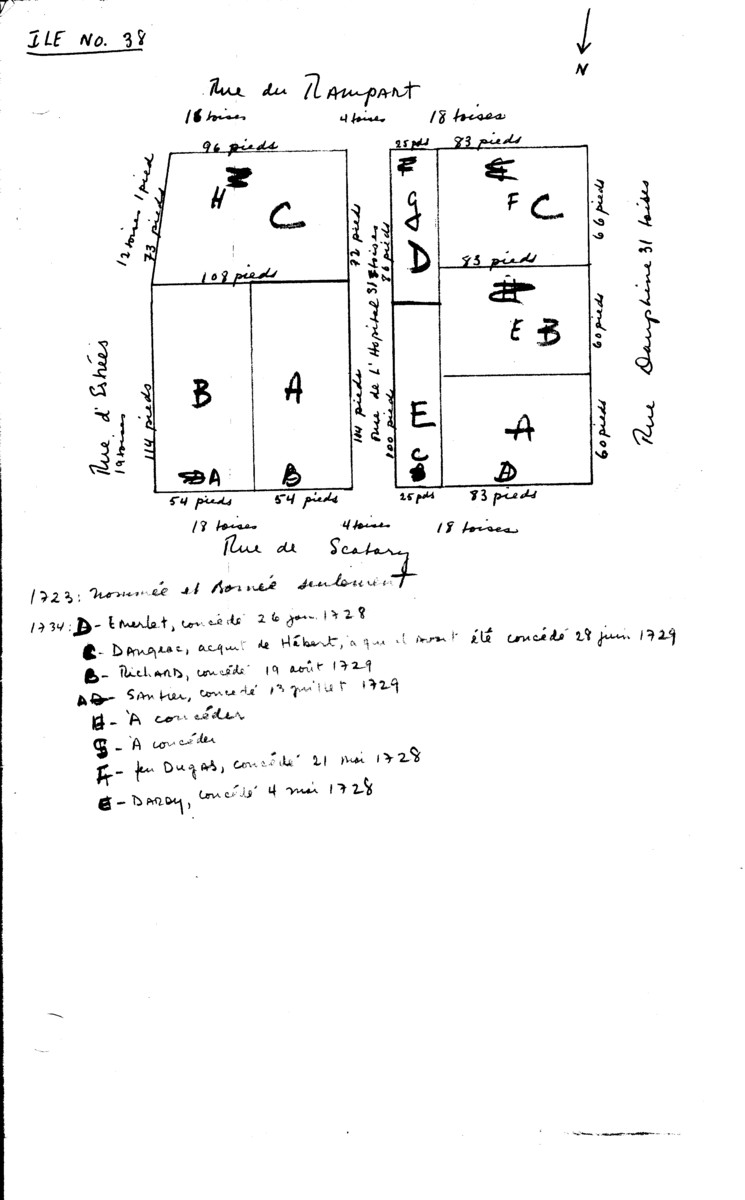 ILE No. 38
N
Rue du Rampart
16 toises 4 toises 18 toises
96 pieds 25 pds 83 pieds
12 toises 1 pied
73 pieds
H C
72 pieds
Rue de L'Hopital 31 toises
86 pieds
G
D
F C
66 pieds
Rue Dauphine 31 toises
108 pieds
83 pieds
E B
60 pieds
Rue d'Estrées
19 toises
114 pieds
B A
114 pieds
100 pieds
E
C
A
D
60 pieds
A B
54 pieds 54 pieds 25 pds 83 pieds
18 toises 4 toises 18 toises
Rue de Scatary
1723: nommée et Bornée seulement
1734: D - Emerlet, concédé 26 jan. 1728
C - Dangeac, acquit de Hébert, à qui il avait été concédé 28 juin 1729
B - Richard, concédé 19 août 1729
A - Santier, concédé 13 juillet 1729
H - A concéder
G - A concéder
F - feu Dugas, concédé 21 mai 1728
E - Daroy, concédé 4 mai 1728